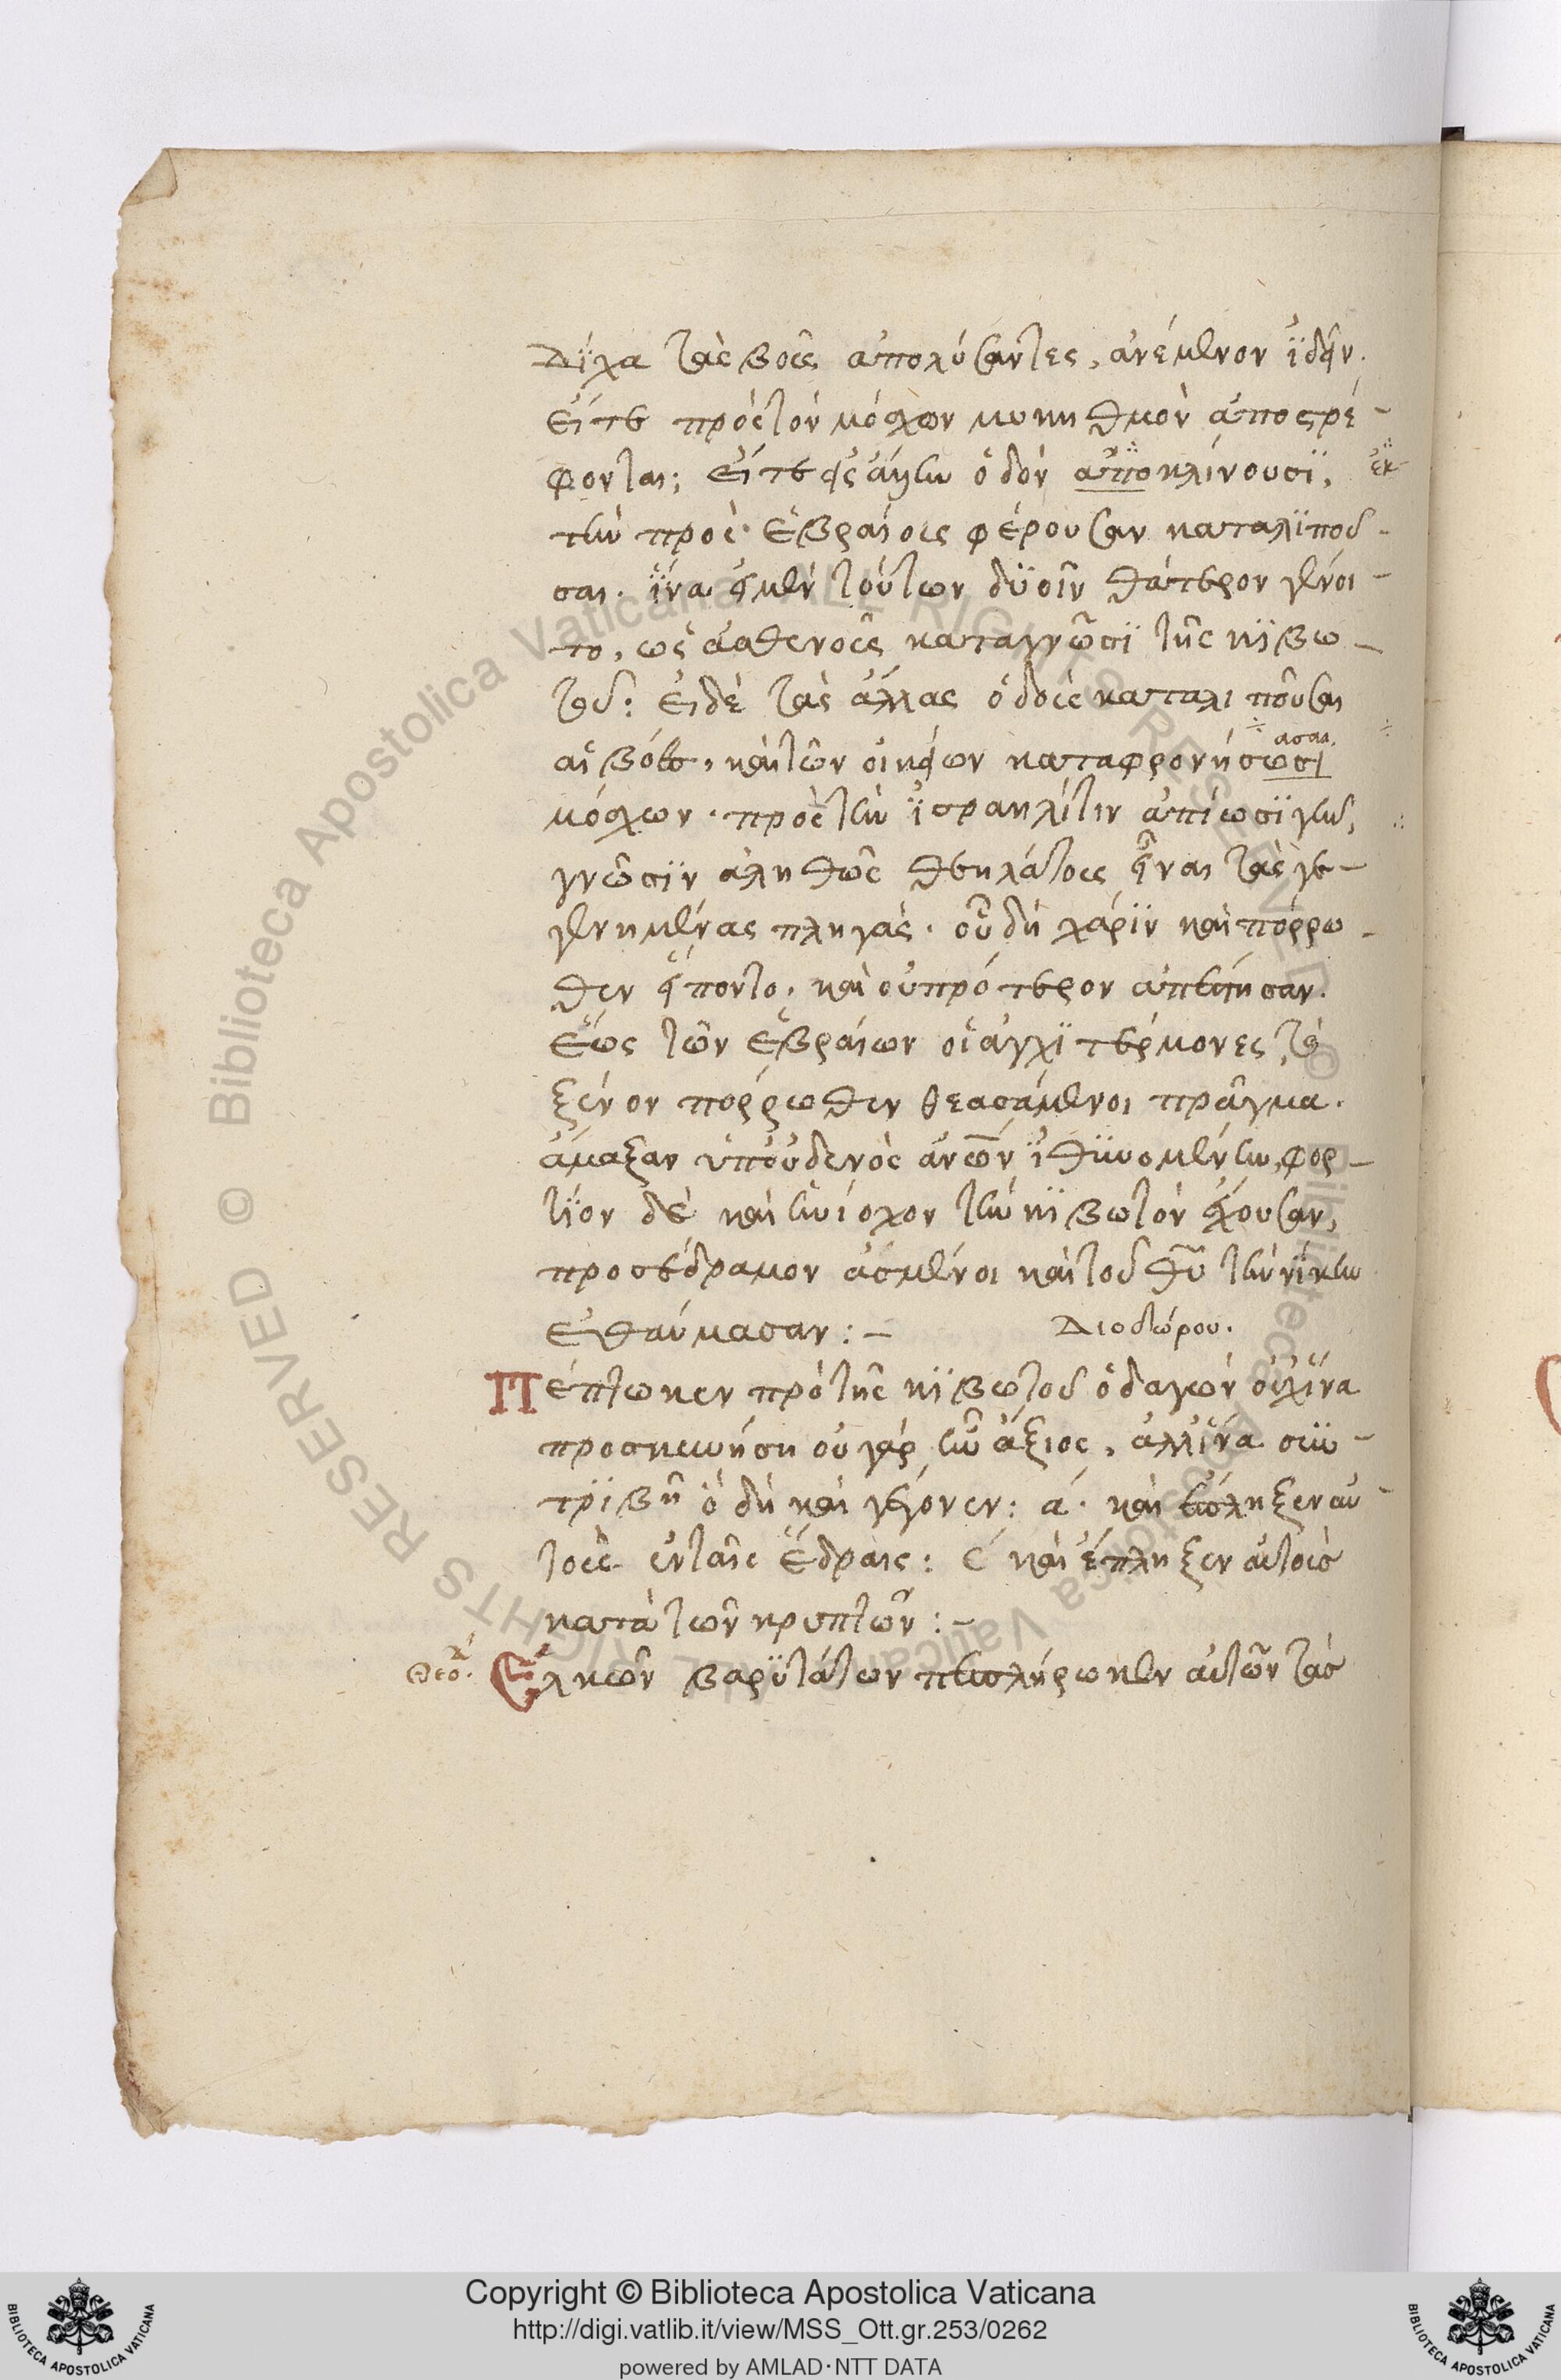 δίχα τὰς βοῦς ἀπολύσαντες, ἀνέμενον ἰδεῖν.
εἴτε πρὸς τὸν μόσχων μυκηθμὸν ἀποστρέ-
φονται; εἴτε εἰς ἄλλην ὁδὸν ἀποκλίνουσι, ἐκ
τὴν πρὸς ἑβραίους φέρουσαν καταλιποῦ-
σαι. ἵνα εἰ μὲν τούτων δυοῖν θάτερον γένοι-
το, ὡς ἀσθενοῦς καταγνῶσι τῆς κιβω-
τοῦ: εἰ δὲ τὰς ἄλλας ὁδοὺς καταλιποῦσαι
αἱ βόες, καὶ τῶν οἰκείων καταφρονήσωσι ασαι
μόσχων. πρὸς τὴν ἰσραηλίτιν ἀπίωσι γῆν,
γνῶσιν ἀληθῶς θεηλάτους εἶναι τὰς γε-
γενημένας πληγάς. οὗ δὴ χάριν καὶ πόρρω-
θεν εἵποντο. καὶ οὐ πρότερον ἀπέστησαν.
ἕως τῶν ἑβραίων οἱ ἀγχιτέρμονες τὸ
ξένον πόρρωθεν θεασάμενοι πρᾶγμα.
ἅμαξαν ὑπ' οὐδενὸς ἀνων ἰθυνομένην, φορ-
τίον δὲ καὶ ἡνίοχον τὴν κιβωτὸν ἔχουσαν,
προσέδραμον ἀσμένοι καὶ τοῦ θυ τὴν νίκην
ἐθαύμασαν:- Διοδώρου.
Πέπτωκεν πρὸ τῆς κιβωτοῦ ὁ δαγὼν οὐχ ἵνα
προσκυνήση οὐ γὰρ ἦν ἄξιος, ἀλλ' ἵνα συν-
τριβῆ ὃ δὴ καὶ γέγονεν: ἀ. καὶ ἔπληξεν αὐ-
τοὺς ἐν ταῖς ἕδραις: ε καὶ ἔπληξεν αὐτοὺς
κατὰ τῶν κρυπτῶν:-
Θεοδ. Ἑλκῶν βαρυτάτων πεπλήρωκεν αὐτῶν τὰς
Copyright © Biblioteca Apostolica Vaticana
http://digi.vatlib.it/view/MSS_Ott.gr.253/0262
powered by AMLAD·NTT DATA